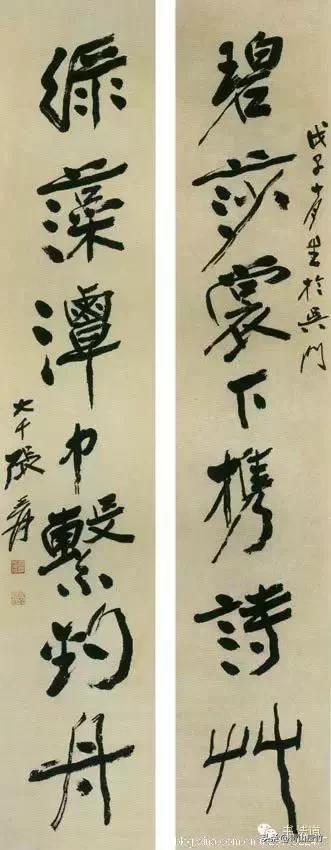 碧莎裳下携詩艸
戊子月書於吳門
綠藻潭中繫釣舟
大千張爰